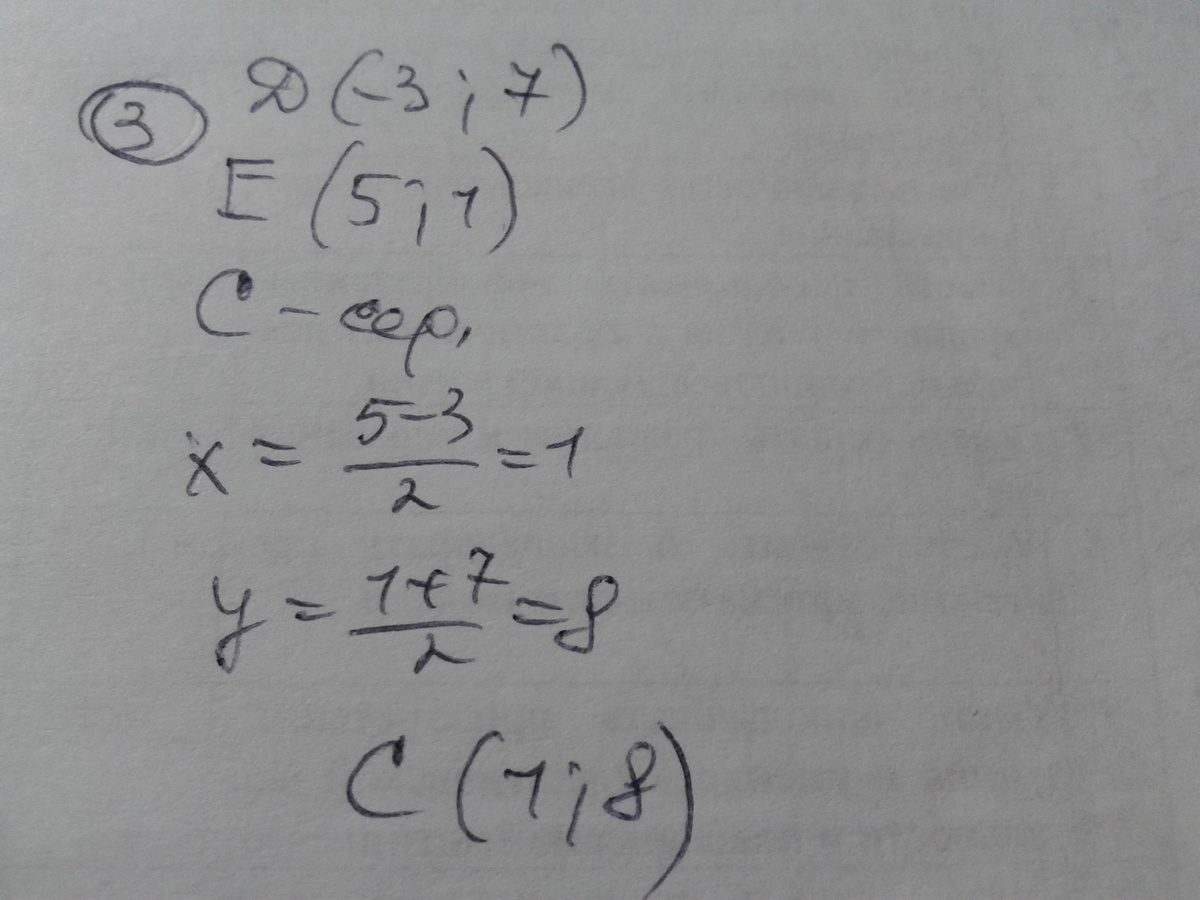 3 D(-3; 7)
E (5; 1)
C - сер.
x = 5-3/2 = 1
y = 1+7/2 = 8
C (1; 8)